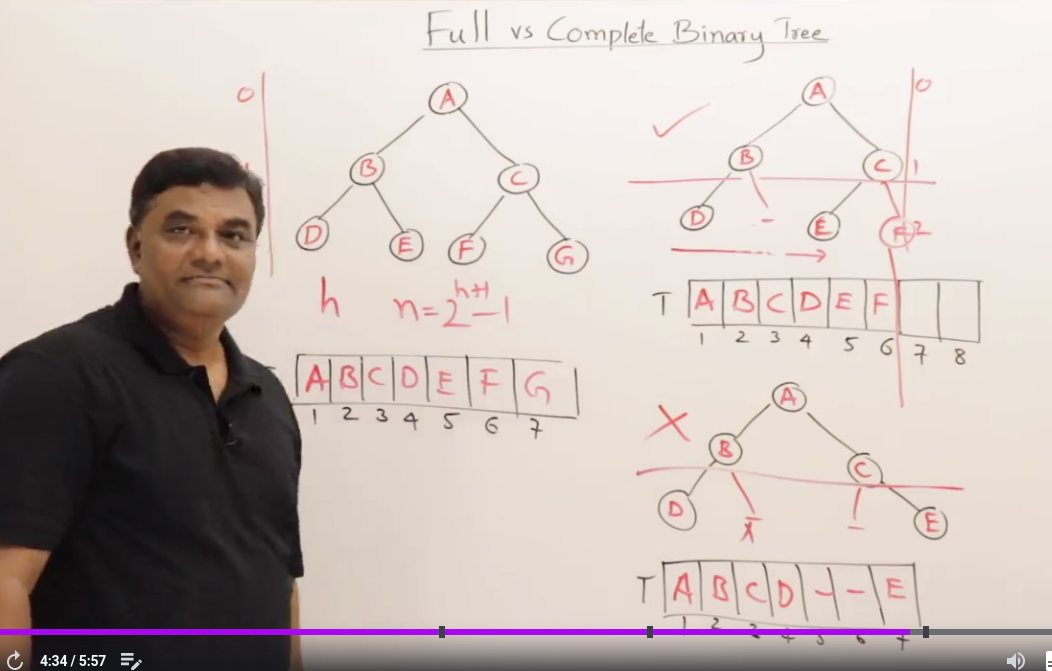 Full vs Complete Binary Tree
0
A
B
C
D
E
F
G
h n=2^(h+1)-1
A B C D E F G
1 2 3 4 5 6 7
A
0
B
C
1
D
-
E
F
2
T A B C D E F
1 2 3 4 5 6 7 8
A
B
C
D
-
E
T A B C D - - E
1 2 3 4 5 6 7
4:34 / 5:57